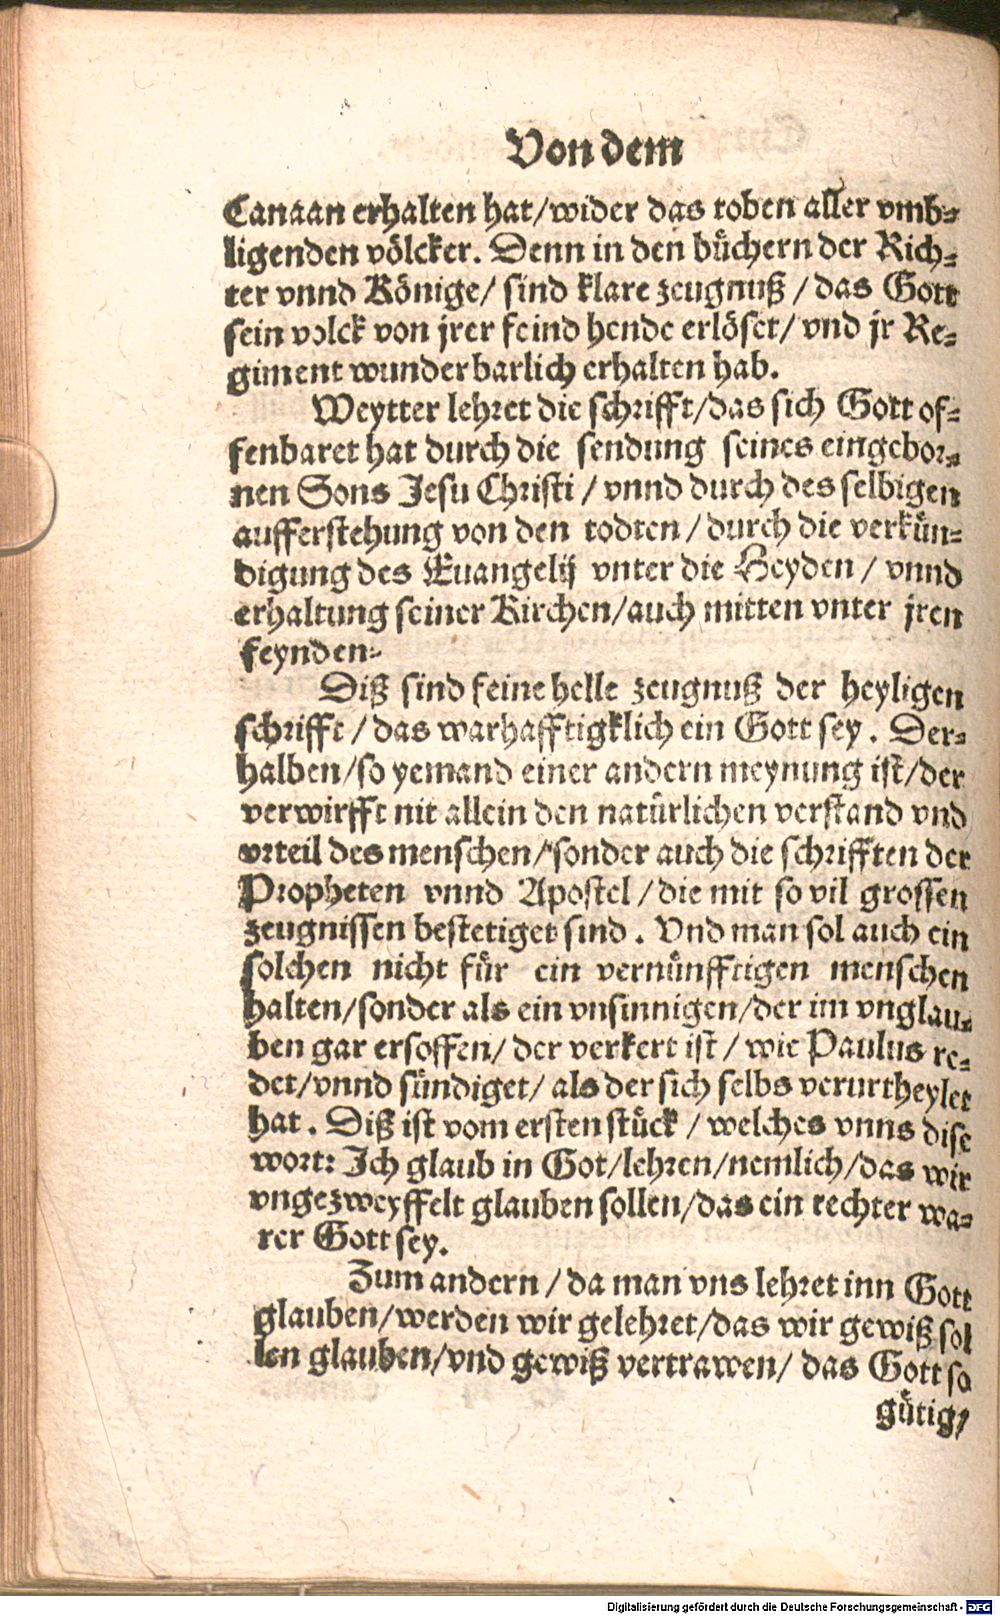 Von dem
Canaan erhalten hat/wider das toben aller vmb-
ligenden völcker. Denn in den büchern der Rich-
ter vnnd Könige/ sind klare zeugnuß / das Gott
sein volck von jrer feind hende erlöset/ vnd jr Re-
giment wunderbarlich erhalten hab.
Weytter lehret die schrifft/das sich Gott of-
fenbaret hat durch die sendung seines eingebor-
nen Sons Jesu Christi / vnnd durch des selbigen
aufferstehung von den todten / durch die verkün-
digung des Euangelij vnter die Heyden / vnnd
erhaltung seiner Kirchen/auch mitten vnter jren
feynden.
Diß sind feine helle zeugnuß der heyligen
schrifft / das warhafftigklich ein Gott sey. Der-
halben/so yemand einer andern meynung ist/der
verwirfft nit allein den natürlichen verstand vnd
vrteil des menschen/sonder auch die schrifften der
Propheten vnnd Apostel / die mit so vil grossen
zeugnissen bestetiget sind. Vnd man sol auch ein
solchen nicht für ein vernünfftigen menschen
halten/sonder als ein vnsinnigen/der im vnglau-
ben gar ersoffen/ der verkert ist / wie Paulus re-
det/vnnd sündiget/ als der sich selbs verurtheylet
hat. Diß ist vom ersten stück / welches vnns dise
wort: Ich glaub in Got/lehren/nemlich/das wir
vngezweyffelt glauben sollen/das ein rechter wa-
rer Gott sey.
Zum andern / da man vns lehret inn Gott
glauben/werden wir gelehret/das wir gewiß sol
len glauben/vnd gewiß vertrawen/ das Gott so
gütig/
Digitalisierung gefördert durch die Deutsche Forschungsgemeinschaft - DFG